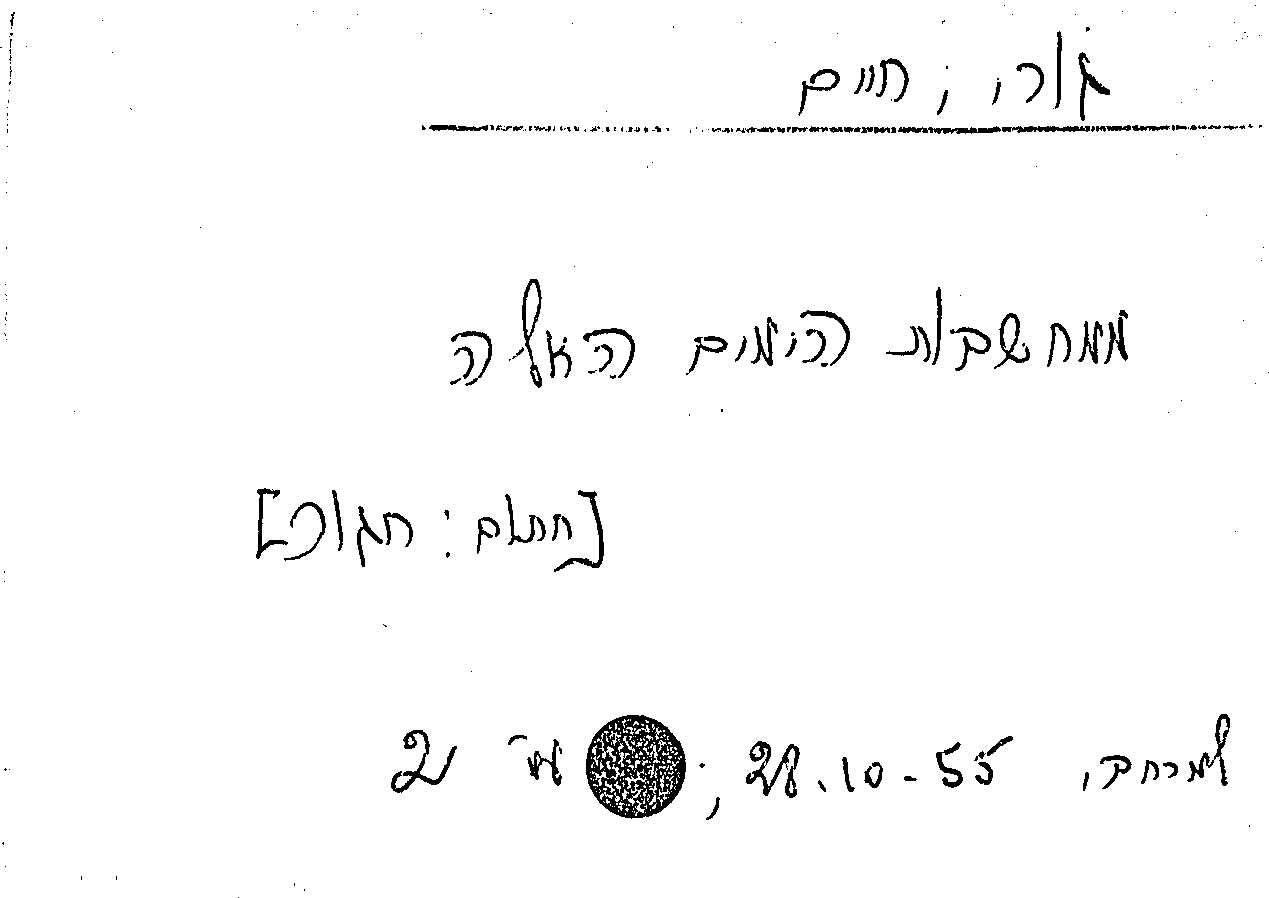 גורי, חיים
ממחשבות הימים האלה
[חתום:
למרחב, 28.10-55; עמ' 2